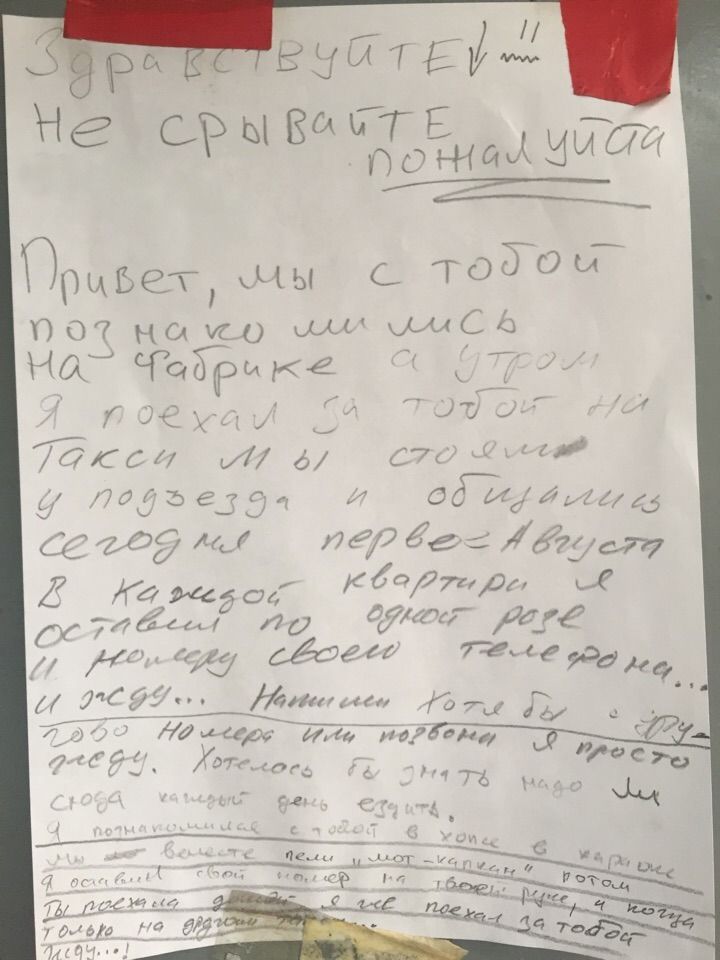 Здравствуйте!
Не срывайте
пожалуйста
Привет, мы с тобой
познакомились
на Фабрике а утром
Я поехал за тобой на
Такси мы стояли
у подъезда и общались
сегодня первое Августа
В каждой квартири я
оставил по одной розе
и номеру своего телефона...
и жду... Напиши Хотя бы с дру-
гово номера или позвони я просто
жду. Хотелось бы знать надо ли
сюда каждый день ездить.
Я познакомился с тобой в холе в караоке
мы вместе пели „мот-капкан" потом
Я оставил свой номер на твоей руке, а когда
Ты поехала домой я же поехал за тобой
только на другом
жду...!